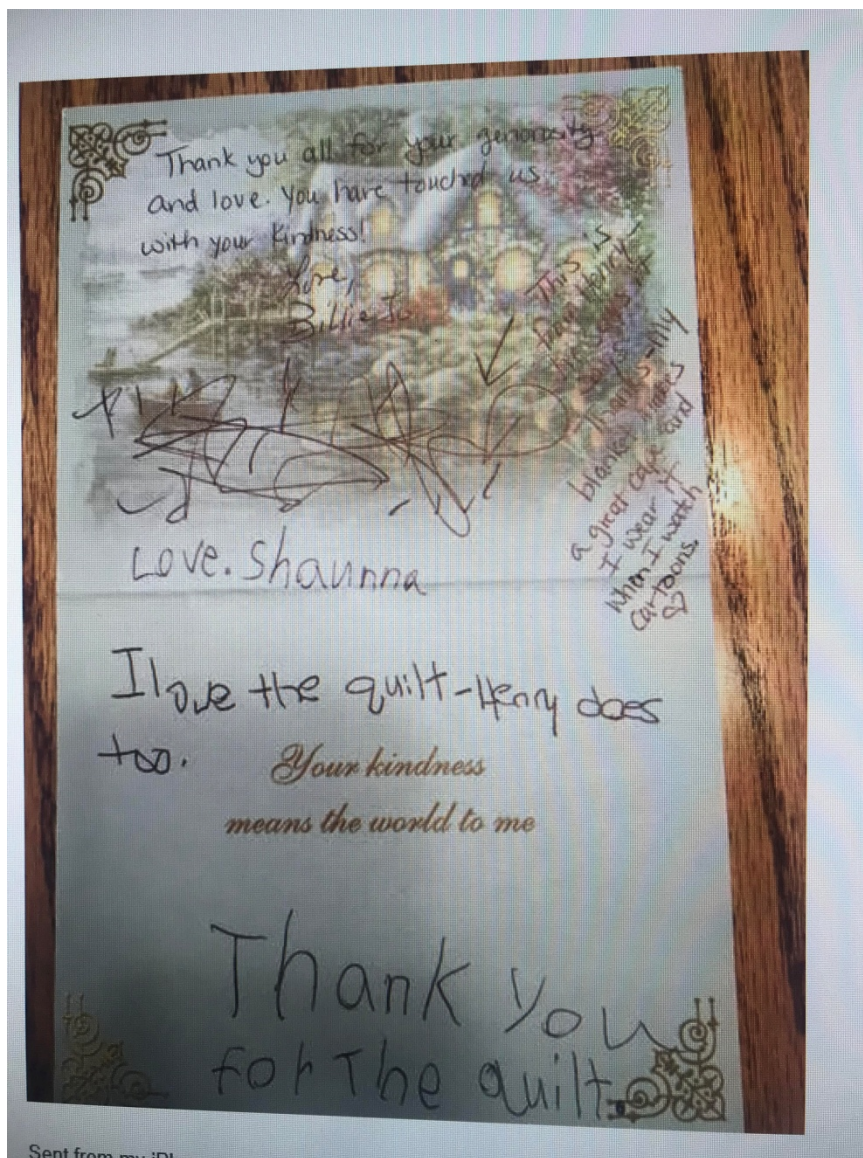 Thank you all for your generosity
and love. You have touched us
with your kindness!
Love,
Billie Jo
This is
from Henry-
he says it
says
Thanks-illy
blanket makes
a great cape and
I wear it
when I watch
cartoons.
Love. Shaunna
I love the quilt-Henry does
too.
Your kindness
means the world to me
Thank you
for the quilt.
Sent from my